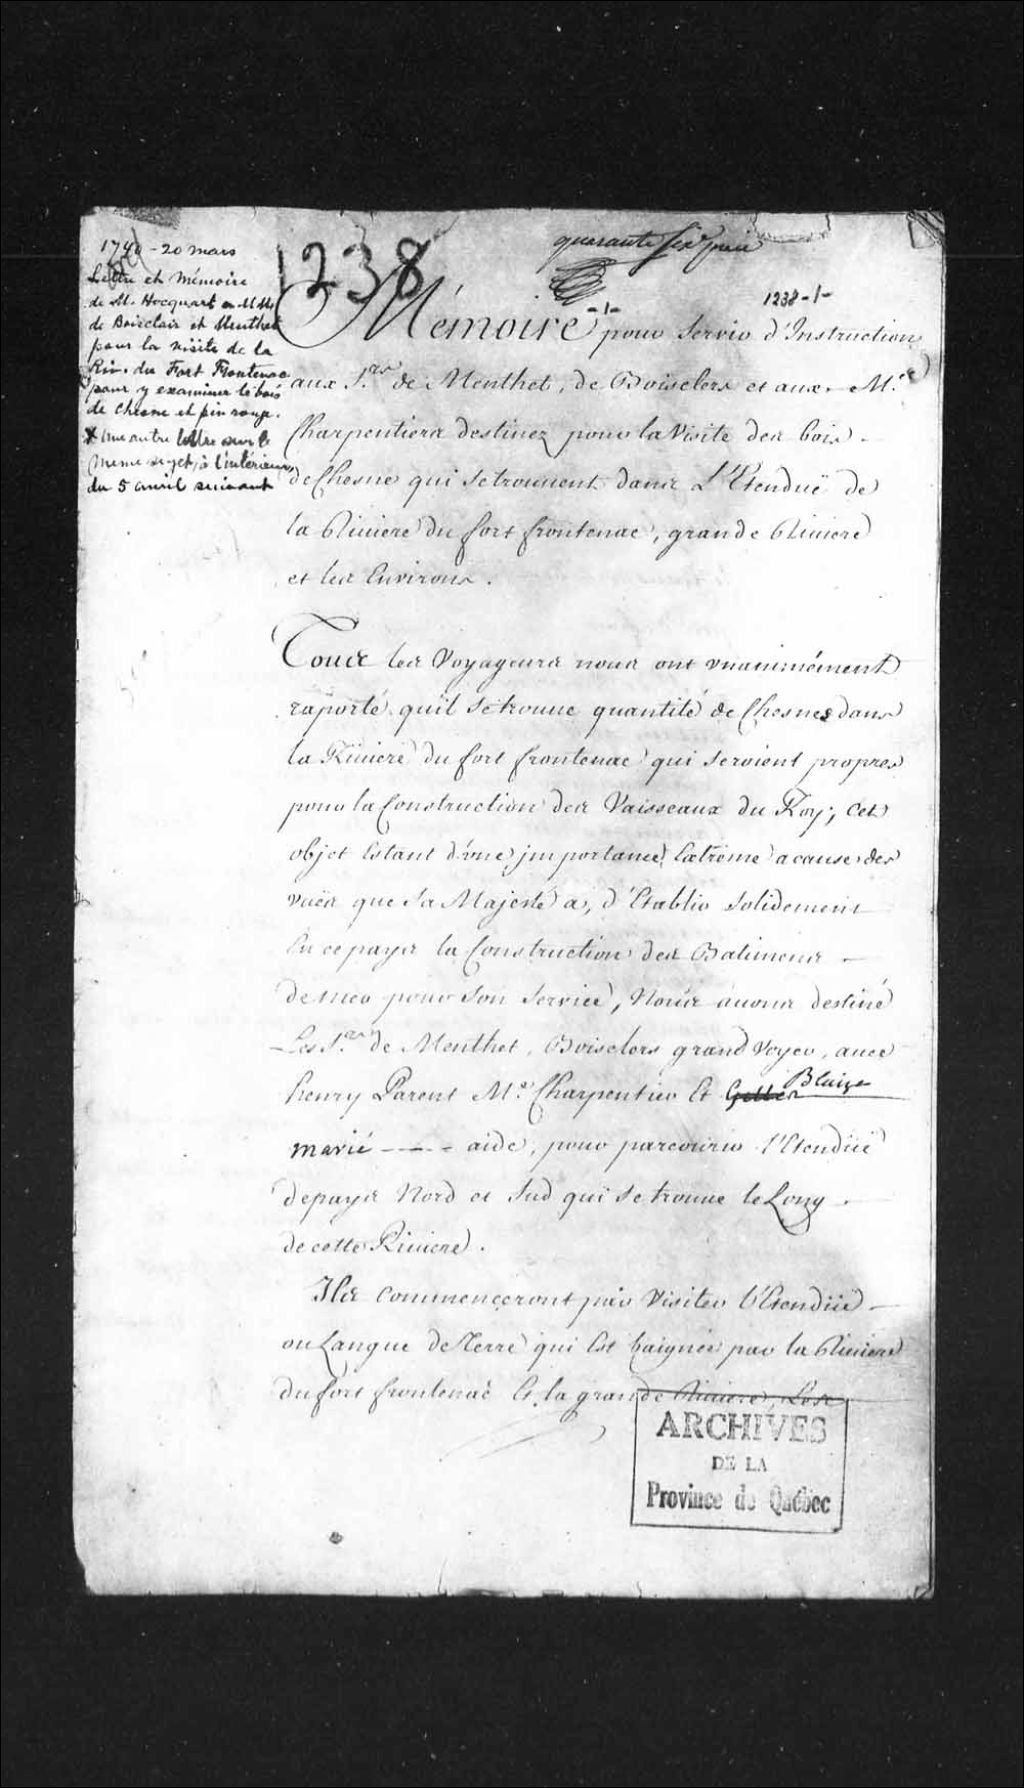 quarante six piece
1740 - 20 mars
Lettre et Mémoire
de M. Hocquart a MM.
de Boisclair et Menthet
pour la visite de la
Riv. du Fort Frontenac
pour y examiner le bois
de chesne et pin rouge.
x une autre lettre sur le
meme sujet, à l'intérieur,
du 5 avril suivant
1238
-1-
1238-1-
Mémoire pour Servir d'Instruction
aux S.rs de Menthet, de Boisclers et aux M.e
Charpentiers destinez pour la Visite des bois
de Chesne qui se trouvent dans L'Etenduë de
la Riviere du fort frontenac, grande Riviere
et les Environs.
Tous les Voyageurs nous ont vnanimément
raporté quïl se trouue quantité de Chesnes dans
la Riuiere du fort frontenac qui seroient propres
pour la Construction des Vaisseaux du Roy; cet
objet Estant d'vne jmportance Extrême a cause des
vuës que Sa Majesté a, d'Etablir solidement
En ce pays la Construction des Batimens
de mer pour Son Service, Nous auons destiné
Les S.rs de Menthet, Boisclers grand Voyer, auec
henry Parent M.e Charpentier Et Blaize
marié - - - aide, pour parcourir l'Etenduë
de pays Nord et Sud qui se trouue le Long
de cette Riuiere.
Ils commenceront par Visiter l'Etenduë
ou Langue de Terre qui Est baignée par la Riuiere
du fort frontenac Et la grande Riuiere, Les
ARCHIVES
DE LA
Province de Québec